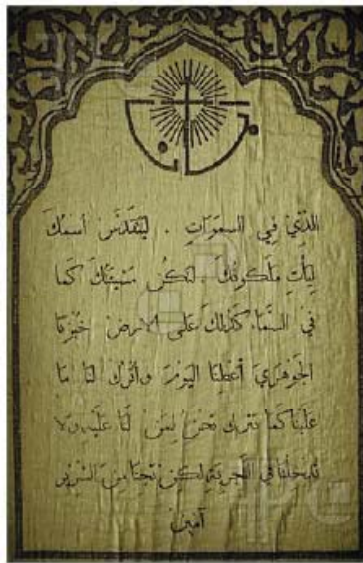 الذي في السموات . ليتقدس اسمك
ليأت ملكوتك . لتكن مشيئتك كما
في السماء كذلك على الارض خبزنا
الجوهري أعطنا اليوم واترك لنا ما
علينا كما نترك نحن لمن لنا عليه ولا
تدخلنا في التجربة لكن نجنا من الشرير
آمين